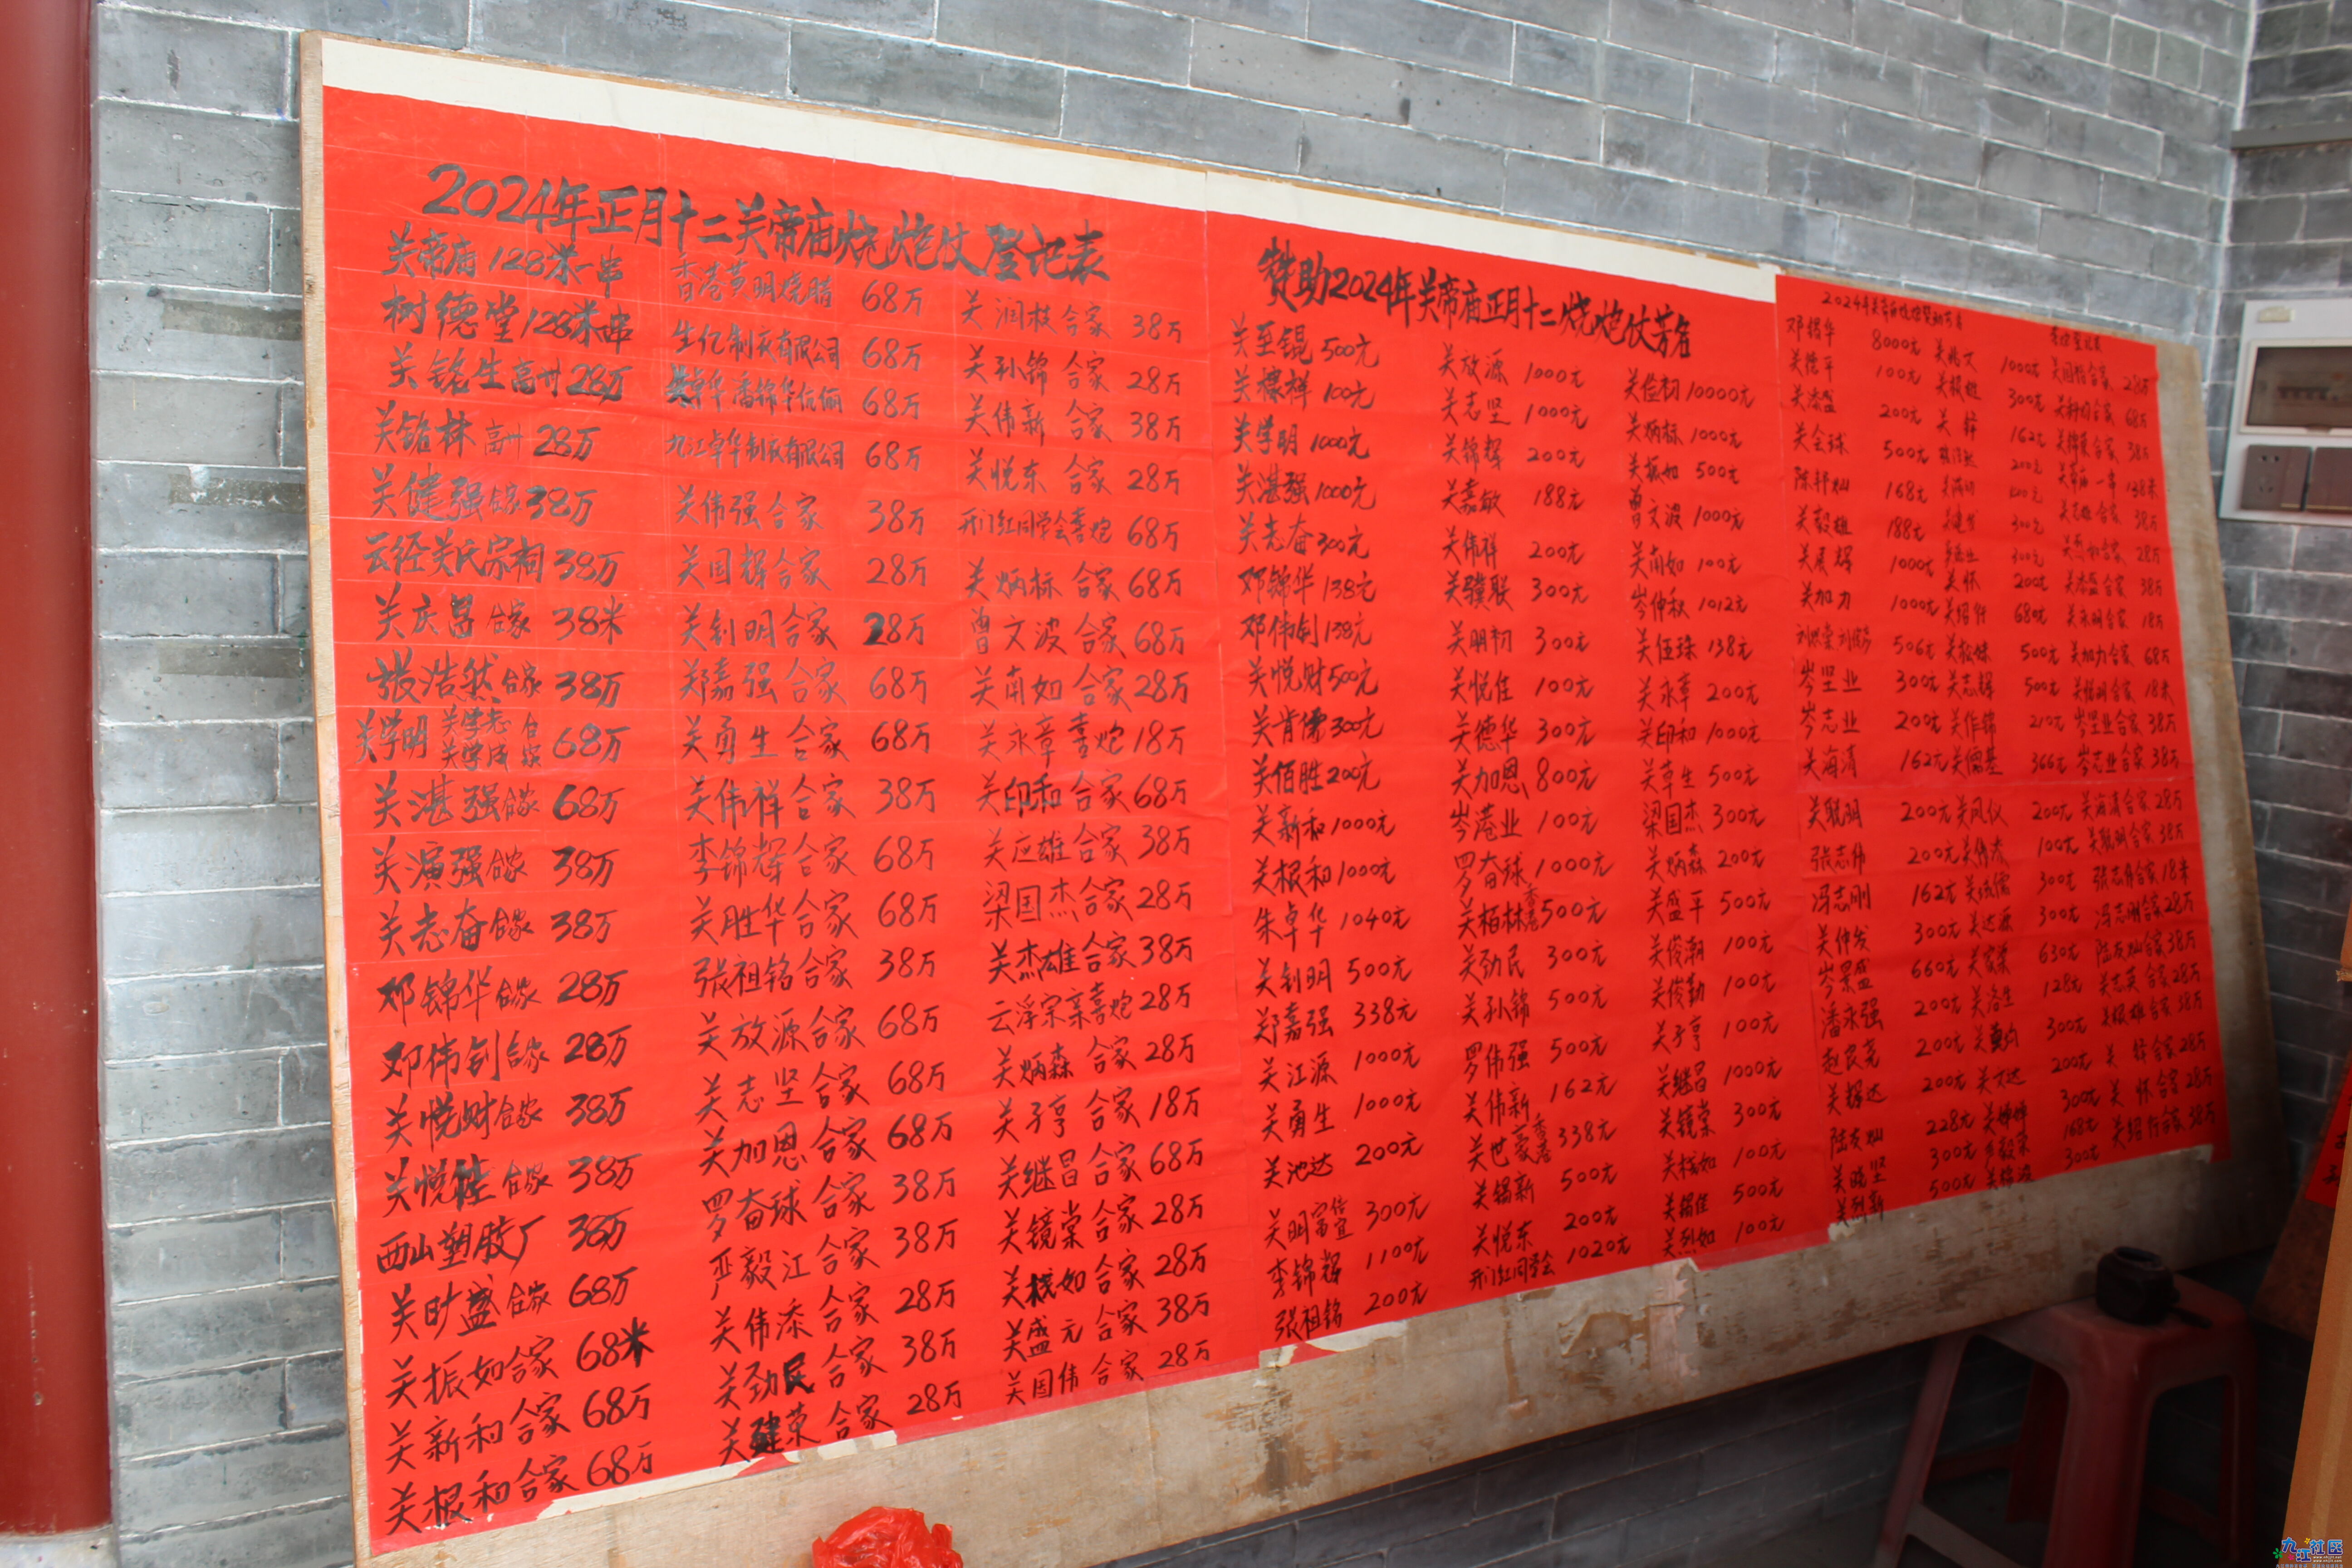 2024年正月十二关帝庙烧炮仗登记表
关帝庙 128米一串
树德堂 128米一串
关铭生 高州 28万
关铭林 高州 28万
关健强 合家 38万
云经关氏宗祠 38万
关庆昌 合家 38米
张浩然 合家 38万
关学明 关学志 关学成 合家 68万
关湛强 合家 68万
关演强 合家 38万
关志奋 合家 38万
邓锦华 合家 28万
邓伟钊 合家 28万
关悦财 合家 38万
关悦佳 合家 38万
西山塑胶厂 38万
关旷盛 合家 68万
关振如 合家 68米
关新和 合家 68万
关根和 合家 68万
香港黄明烧腊 68万
生亿制衣有限公司 68万
朱卓华 潘锦华伉俪 68万
九江卓华制衣有限公司 68万
关伟强 合家 38万
关国辉 合家 28万
关钊明 合家 28万
郑嘉强 合家 68万
关勇生 合家 68万
关伟祥 合家 38万
李锦辉 合家 68万
关胜华 合家 68万
张祖铭 合家 38万
关放源 合家 68万
关志坚 合家 68万
关加恩 合家 68万
罗奋球 合家 38万
严毅江 合家 38万
关伟添 合家 28万
关劲民 合家 38万
关建荣 合家 28万
关润枝 合家 38万
关孙锦 合家 28万
关伟新 合家 38万
关悦东 合家 28万
开门红同学会喜炮 68万
关炳标 合家 68万
曾文波 合家 68万
关南如 合家 28万
关永章 喜炮 18万
关印和 合家 68万
关应雄 合家 38万
梁国杰 合家 28万
关杰雄 合家 38万
云浮宗亲喜炮 28万
关炳森 合家 28万
关子亨 合家 18万
关继昌 合家 68万
关镜棠 合家 28万
关栈如 合家 28万
关盛元 合家 38万
关国伟 合家 28万
赞助2024年关帝庙正月十二烧炮仗芳名
关至锟 500元
关樣样 100元
关学明 1000元
关湛强 1000元
关志奋 300元
邓锦华 138元
邓伟钊 138元
关悦财 500元
关肯儒 300元
关佰胜 200元
关新和 1000元
关根和 1000元
朱卓华 1040元
关钊明 500元
郑嘉强 338元
关江源 1000元
关勇生 1000元
关池达 200元
关明富 信宜 300元
李锦辉 1100元
张祖铭 200元
关放源 1000元
关志坚 1000元
关锦辉 200元
关嘉敏 188元
关伟祥 200元
关骥联 300元
关明初 300元
关悦佳 100元
关德华 300元
关加恩 800元
岑港业 100元
罗奋球 1000元
关柏林 香港 500元
关劲民 300元
关孙锦 500元
罗伟强 500元
关伟新 162元
关世豪 香港 338元
关锡新 500元
关悦东 200元
开门红同学会 1020元
关俭初 10000元
关炳标 1000元
关振如 500元
曾文波 1000元
关南如 100元
岑仲秋 1012元
关伍珠 138元
关永章 200元
关印和 1000元
关草生 500元
梁国杰 300元
关炳森 200元
关盛平 500元
关俊潮 100元
关俊勤 100元
关子亨 100元
关继昌 1000元
关镜棠 300元
关栈如 100元
关锡佳 500元
关烈如 100元
邓锦华 8000元
关德平 100元
关添盛 200元
关会球 500元
陈轩灿 168元
关毅雄 188元
关展辉 1000元
关加力 1000元
506元
岑坚业 300元
岑志业 200元
关海清 162元
关聪明 200元
张志伟 200元
冯志刚 162元
关仲发 300元
岑景盛 660元
潘永强 200元
赵良尧 200元
关辉达 200元
陆友灿 228元
关晓坚 300元
关烈新 500元
1000元
300元
162元
200元
300元
300元
关怀 200元
关绍行 680元
500元
关志辉 500元
关作锦 210元
关儒基 366元
关凤仪 200元
100元
300元
关达源 300元
关家荣 630元
关洛生 128元
300元
关文达 200元
关婵婵 300元
168元
300元
28万
68万
38万
关帝庙 一串 138米
关志雄 合家 38万
28万
关添盛 合家 38万
关永明 合家 18万
关加力 合家 68万
18米
岑坚业 合家 38万
岑志业 合家 38万
关海清 合家 28万
关聪明 合家 38万
18米
冯志刚 合家 28万
陆友灿 合家 38万
关志英 合家 28万
38万
28万
关怀 合家 28万
关绍行 合家 38万
九江社区